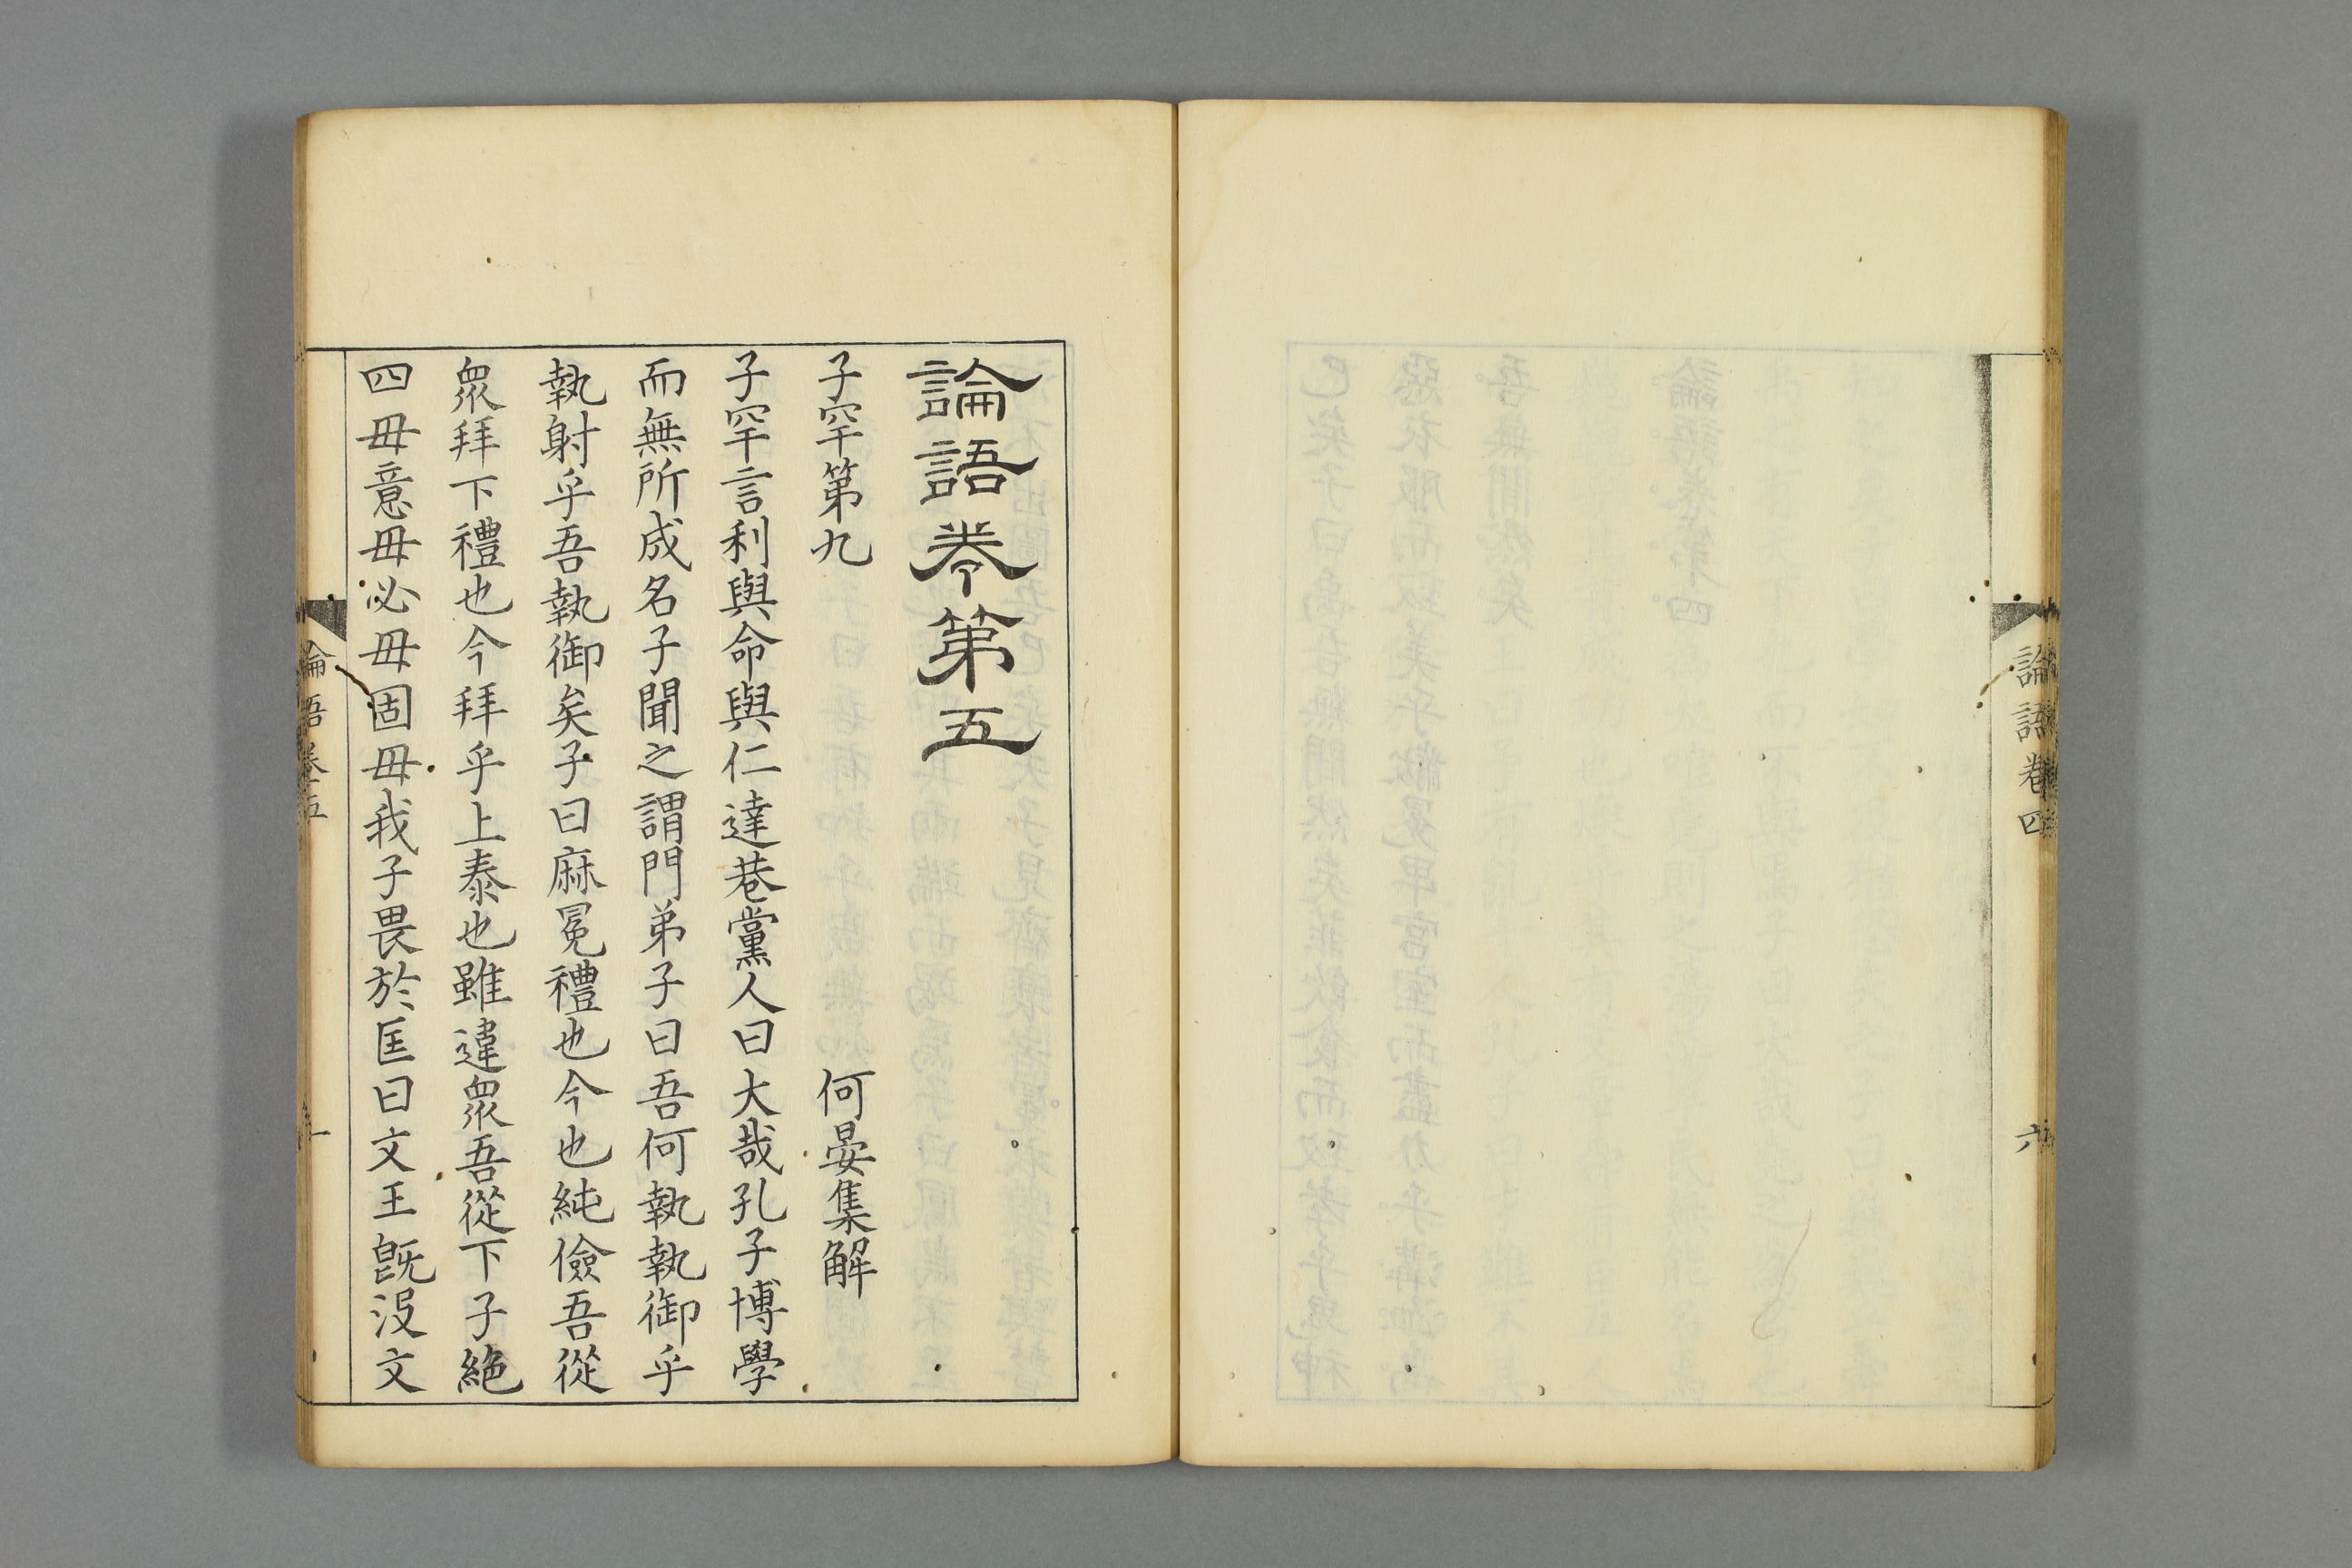 論語卷四
六
論語卷第五
子罕第九 何晏集解
子罕言利與命與仁達巷黨人曰大哉孔子博學
而無所成名子聞之謂門弟子曰吾何執執御乎
執射乎吾執御矣子曰麻冕禮也今也純儉吾從
衆拜下禮也今拜乎上泰也雖違衆吾從下子絶
四毋意毋必毋固毋我子畏於匡曰文王旣沒文
論語卷五
一